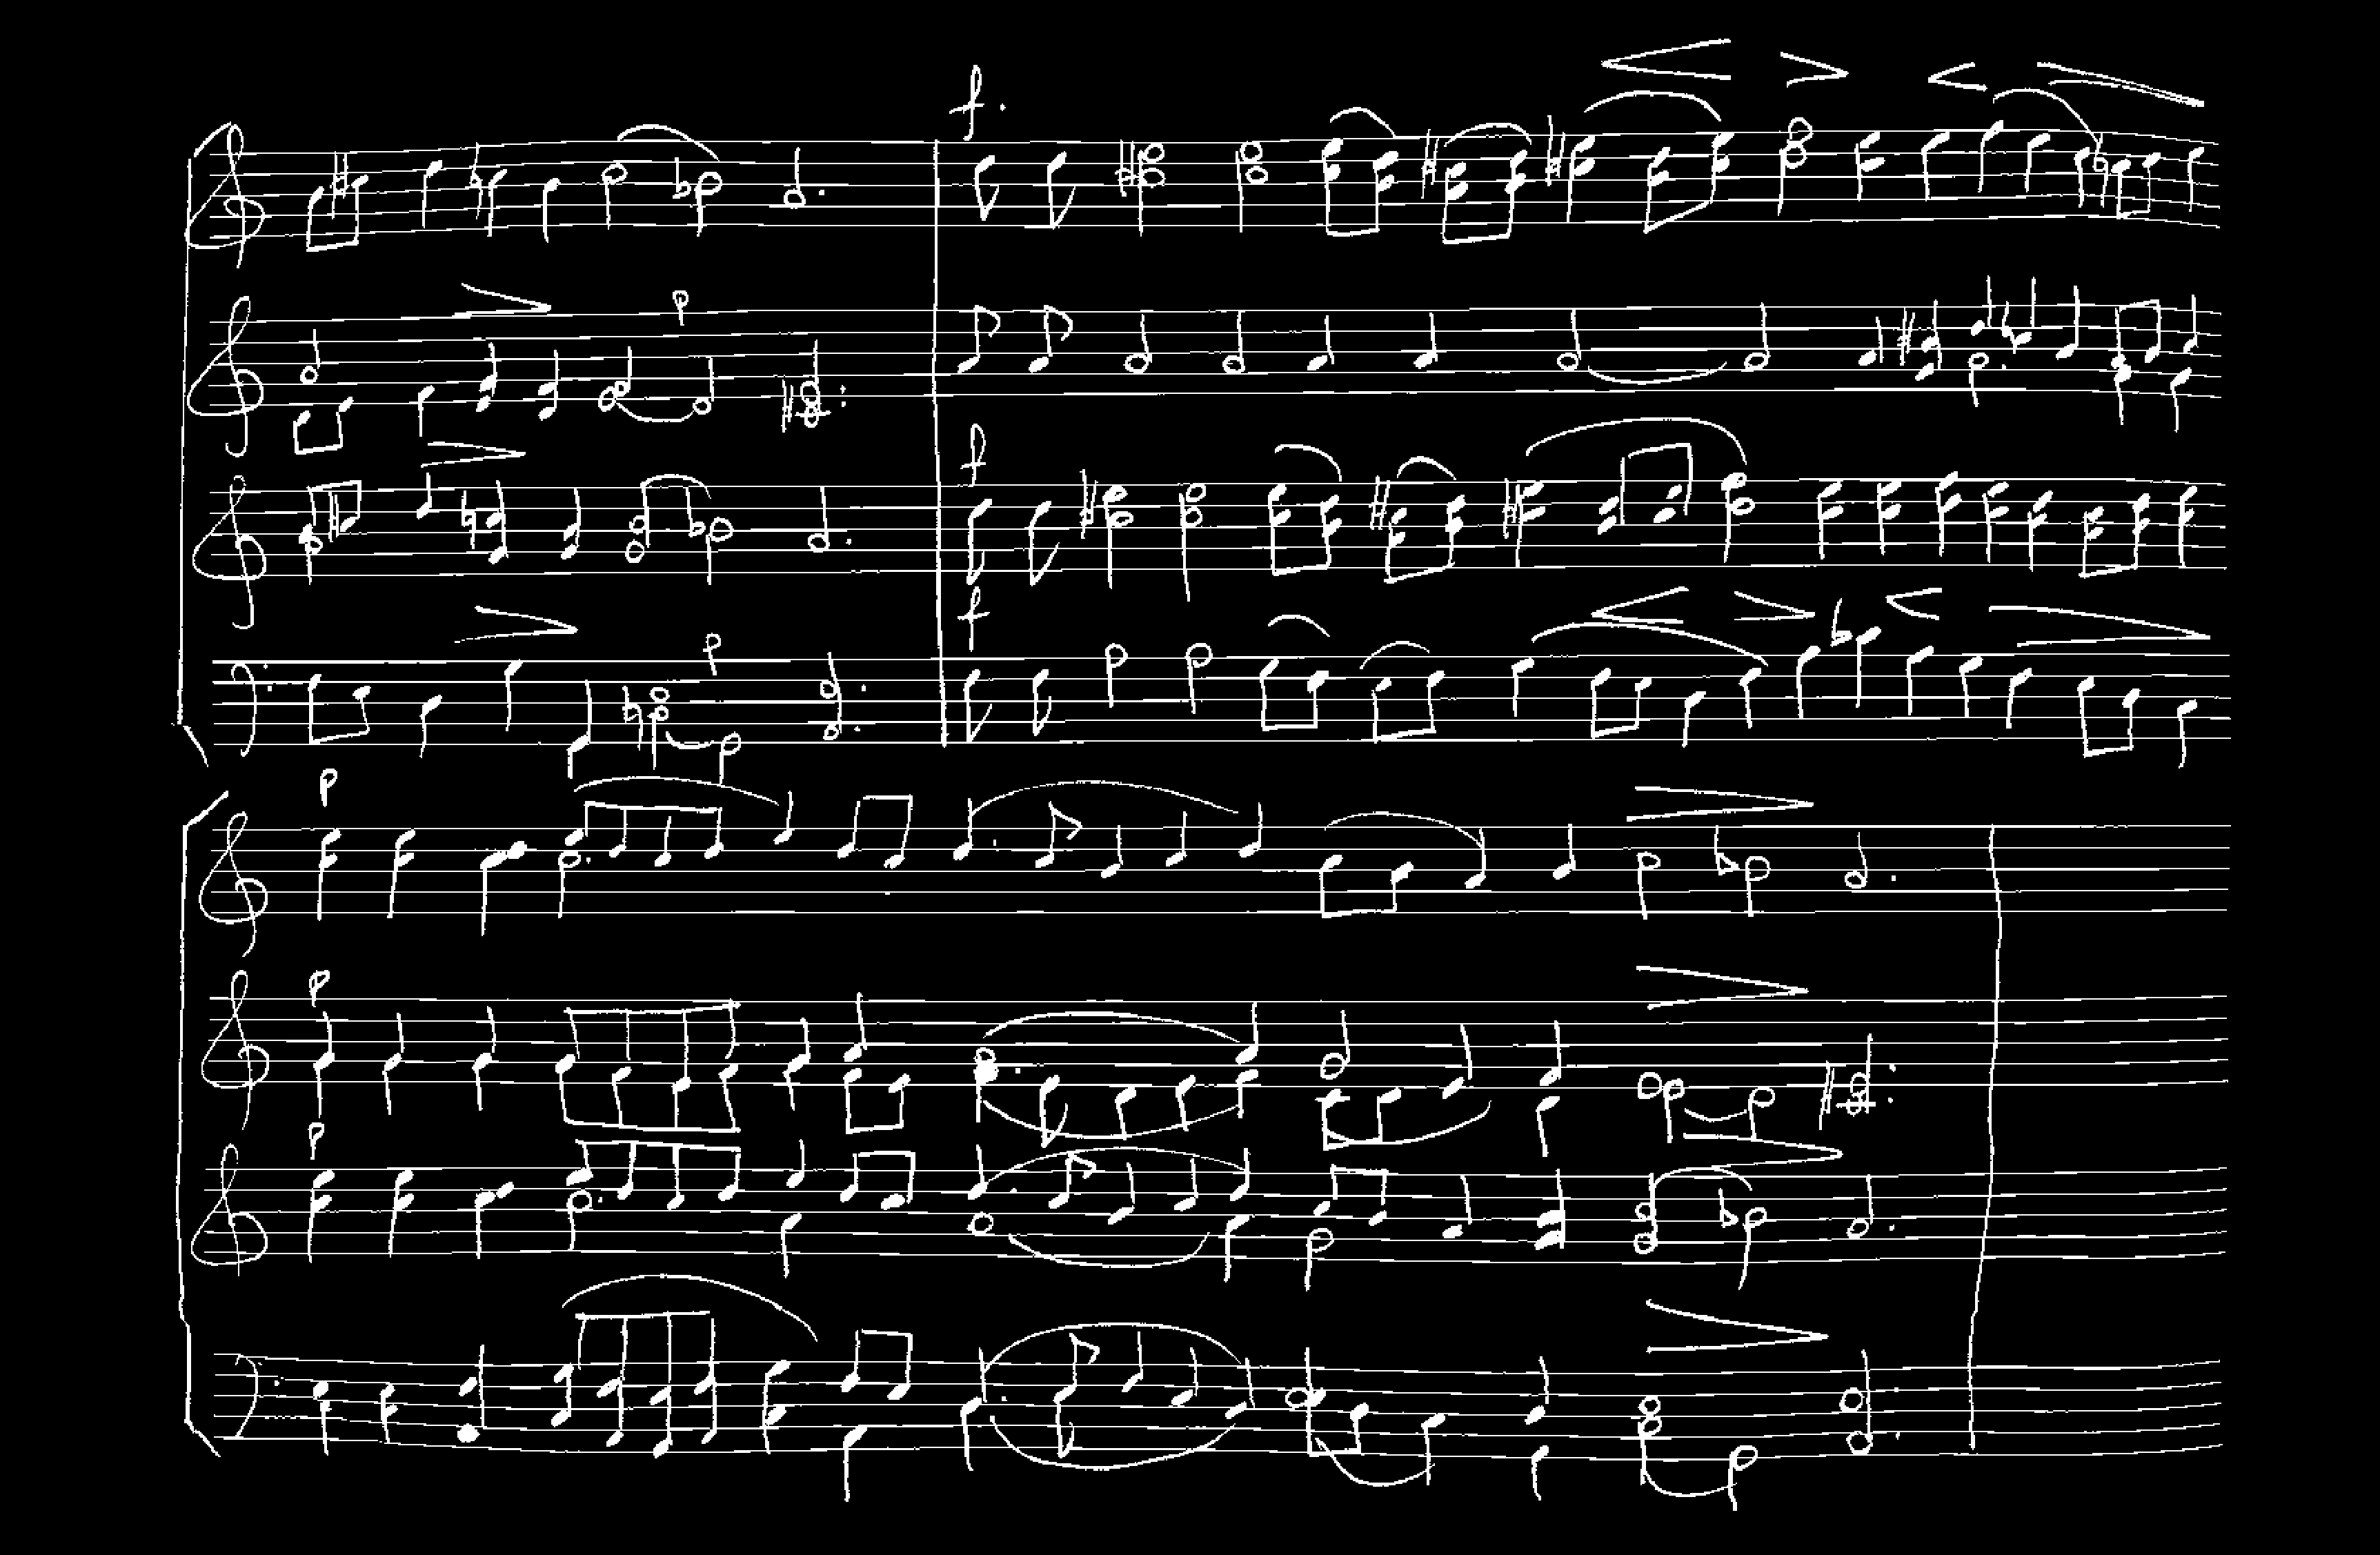 f.
p
f
f
p
p
p
p